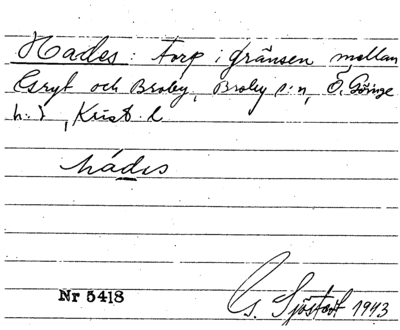 Hades: torp i gränsen mellan
Gryt och Broby, Broby s:n, Ö. Göinge
h:d, Krist. l
hádes
Nr 5418
G. Sjöstedt 1943